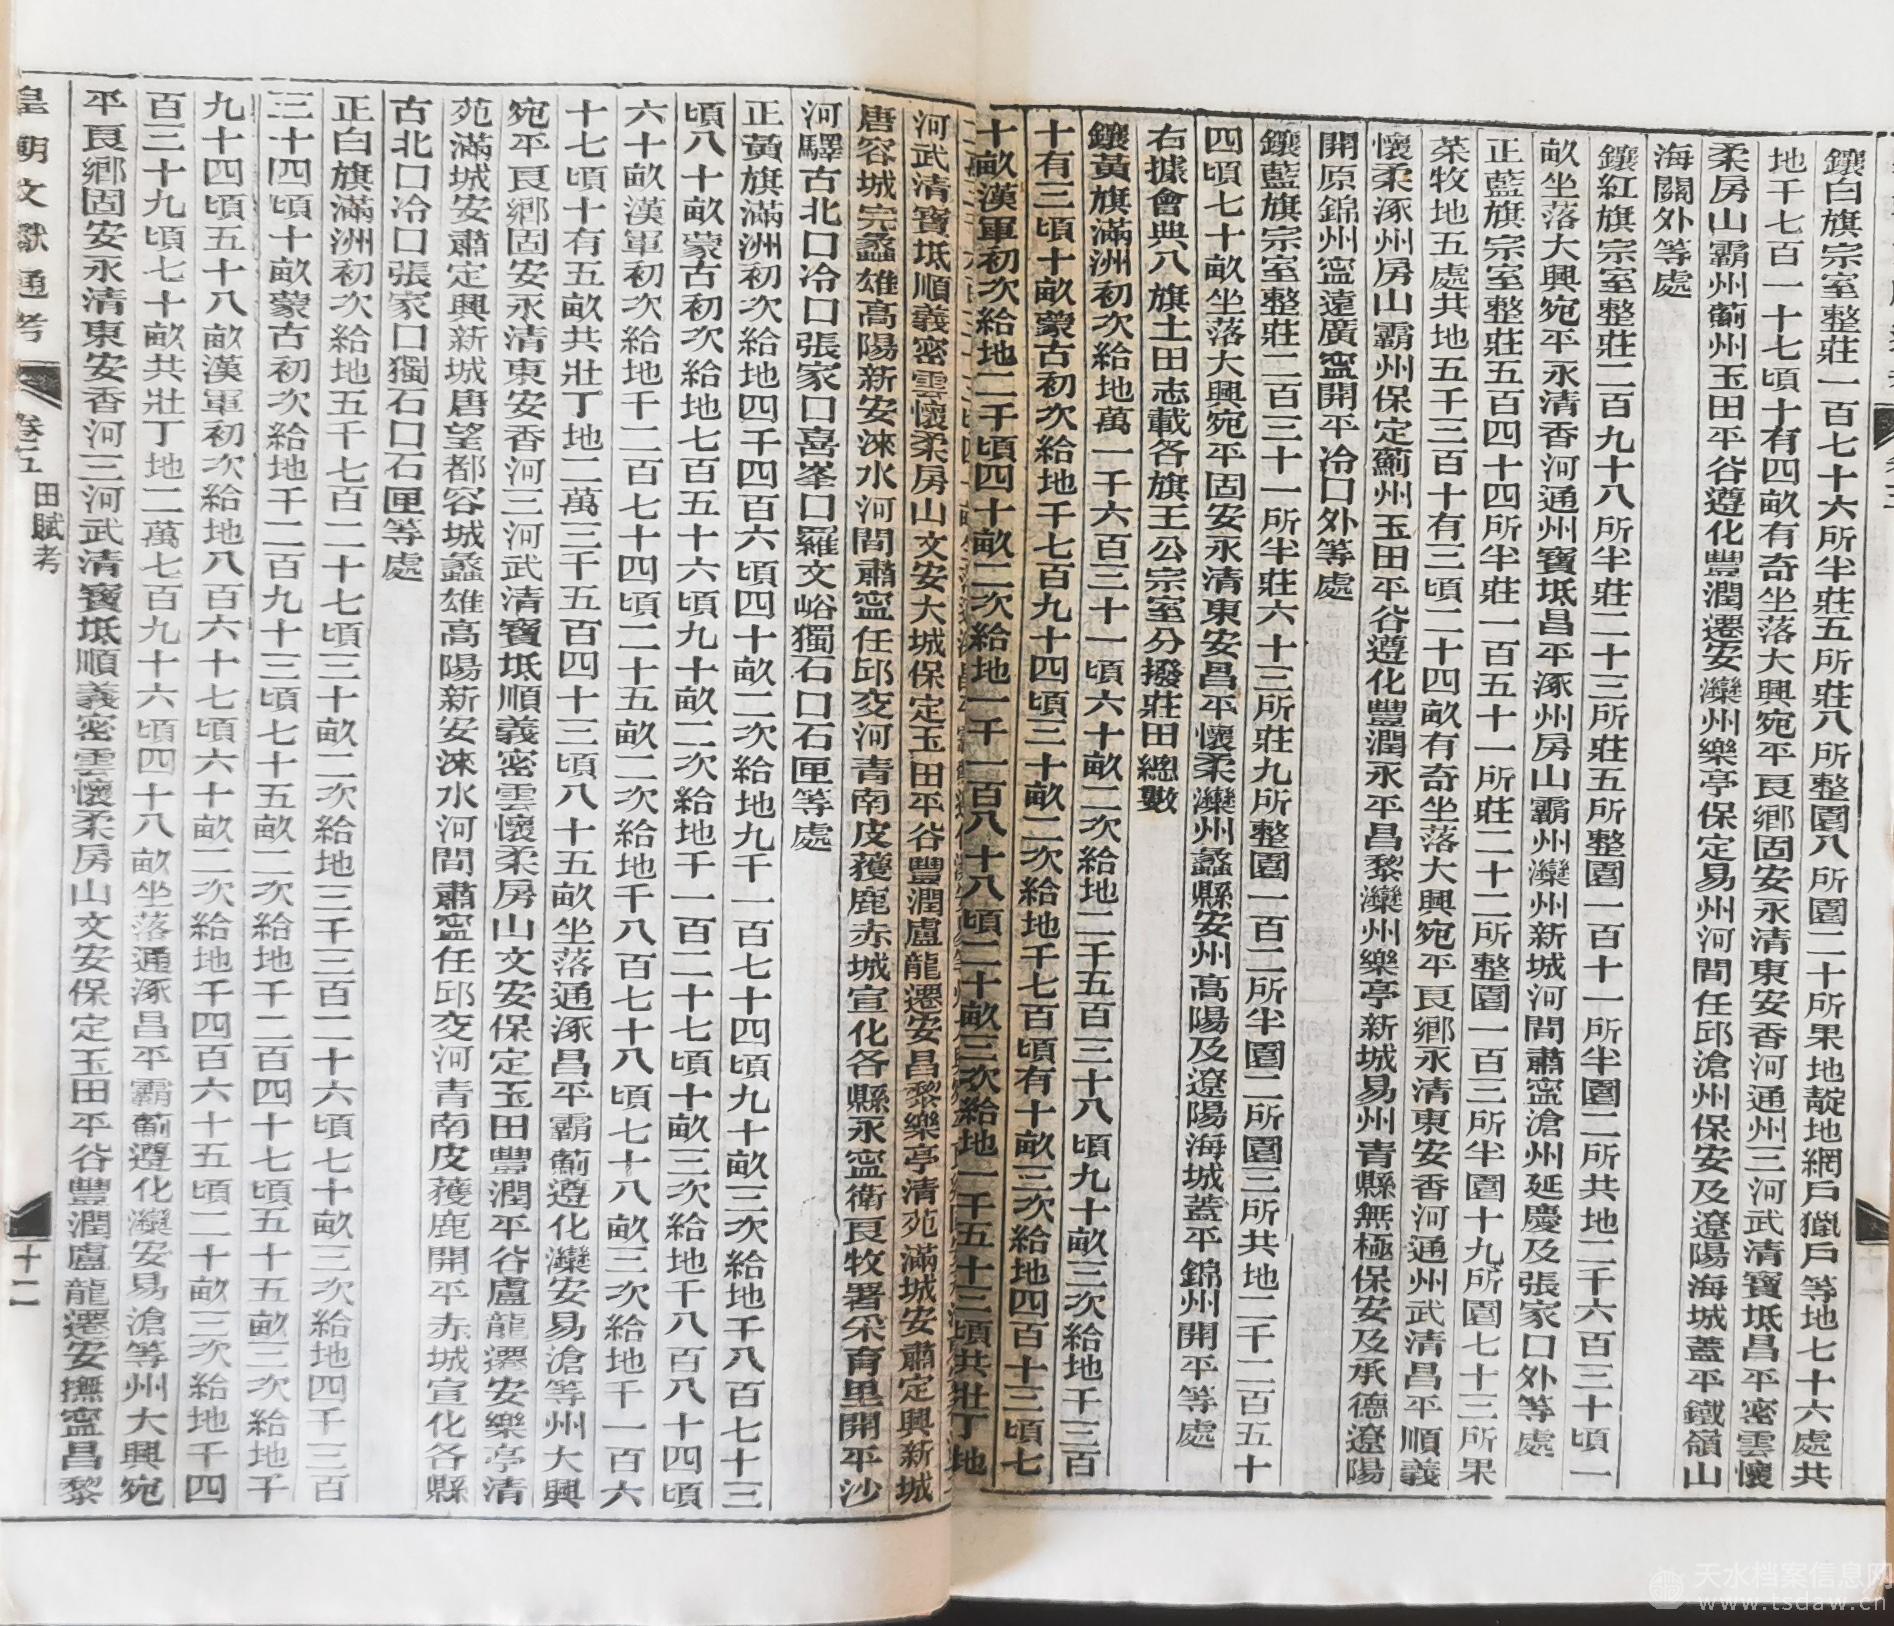 鑲白旗宗室整莊一百七十六所半莊五所莊八所整園八所園二十所果地靛地網戶獵戶等地七十六處共
地千七百一十七頃十有四畝有奇坐落大興宛平良鄉固安永清東安香河通州三河武清寶坻昌平密雲懷
柔房山霸州薊州玉田平谷遵化豐潤遷安灤州樂亭保定易州河間任邱滄州保安及遼陽海城蓋平鐵嶺山
海關外等處
鑲紅旗宗室整莊二百九十八所半莊二十三所莊五所整園一百十一所半園二所共地二千六百三十頃一
畝坐落大興宛平永清香河通州寶坻昌平涿州房山霸州灤州新城河間肅寧滄州延慶及張家口外等處
正藍旗宗室整莊五百四十四所半莊一百五十一所莊二十二所整園一百三所半園十九所園七十三所果
菜牧地五處共地五千三百十有三頃二十四畝有奇坐落大興宛平良鄉永清東安香河通州武清昌平順義
懷柔涿州房山霸州保定薊州玉田平谷遵化豐潤永平昌黎灤州樂亭新城易州青縣無極保安及承德遼陽
開原錦州寧遠廣寧開平冷口外等處
鑲藍旗宗室整莊二百三十一所半莊六十三所莊九所整園一百二所半園二所園三所共地二千二百五十
四頃七十畝坐落大興宛平固安永清東安昌平懷柔灤州蠡縣安州高陽及遼陽海城蓋平錦州開平等處
右據會典八旗土田志載各旗王公宗室分撥莊田總數
鑲黃旗滿洲初次給地萬一千六百三十一頃六十畝二次給地二千五百三十八頃九十畝三次給地千三百
十有三頃十畝蒙古初次給地千七百九十四頃三十畝二次給地千七百頃有十畝三次給地四百十三頃七
十畝漢軍初次給地二千頃四十畝二次給地一千一百八十八頃二十畝三次給地一千五十二頃共壯丁地
河武清寶坻順義密雲懷柔房山文安大城保定玉田平谷豐潤盧龍遷安昌黎樂亭清苑滿城安肅定興新城
唐容城完蠡雄高陽新安淶水河間肅寧任邱交河青南皮獲鹿赤城宣化各縣永寧衛良牧署采育里開平沙
河驛古北口冷口張家口喜峯口羅文峪獨石口石匣等處
正黃旗滿洲初次給地四千四百六頃四十畝二次給地九千一百七十四頃九十畝三次給地千八百七十三
頃八十畝蒙古初次給地七百五十六頃九十畝二次給地千一百二十七頃十畝三次給地千八百八十四頃
六十畝漢軍初次給地千二百七十四頃二十五畝二次給地千八百七十八頃七十八畝三次給地千一百六
十七頃十有五畝共壯丁地二萬三千五百四十三頃八十五畝坐落通涿昌平霸薊遵化灤安易滄等州大興
宛平良鄉固安永清東安香河三河武清寶坻順義密雲懷柔房山文安保定玉田豐潤平谷盧龍遷安樂亭清
苑滿城安肅定興新城唐望都容城蠡雄高陽新安淶水河間肅寧任邱交河青南皮獲鹿開平赤城宣化各縣
古北口冷口張家口獨石口石匣等處
正白旗滿洲初次給地五千七百二十七頃三十畝二次給地三千三百二十六頃七十畝三次給地四千三百
三十四頃十畝蒙古初次給地千二百九十三頃七十五畝二次給地千二百四十七頃五十五畝三次給地千
九十四頃五十八畝漢軍初次給地八百六十七頃六十畝二次給地千四百六十五頃二十畝三次給地千四
百二十九頃七十畝共壯丁地二萬七百九十六頃四十八畝坐落通涿昌平霸薊遵化灤安易滄等州大興宛
平良鄉固安永清東安香河三河武清寶坻順義密雲懷柔房山文安保定玉田平谷豐潤盧龍遷安撫寧昌黎
皇朝文獻通考 卷五 田賦考 十二
天水档案信息网
www.tsdaw.cn